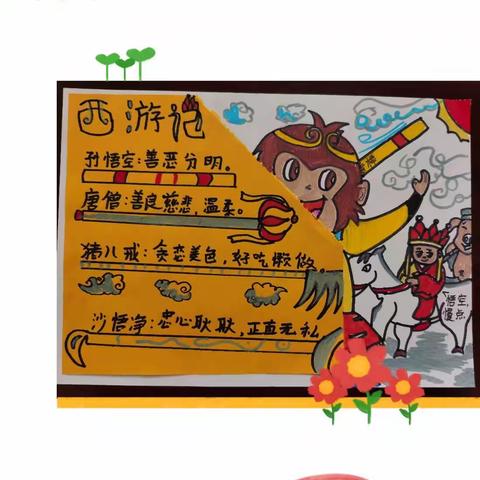 西游记
孙悟空:善恶分明。
唐僧:善良慈悲,温柔。
猪八戒:贪恋美色,好吃懒做
沙悟净:忠心耿耿,正直无私
悟空,
慢点